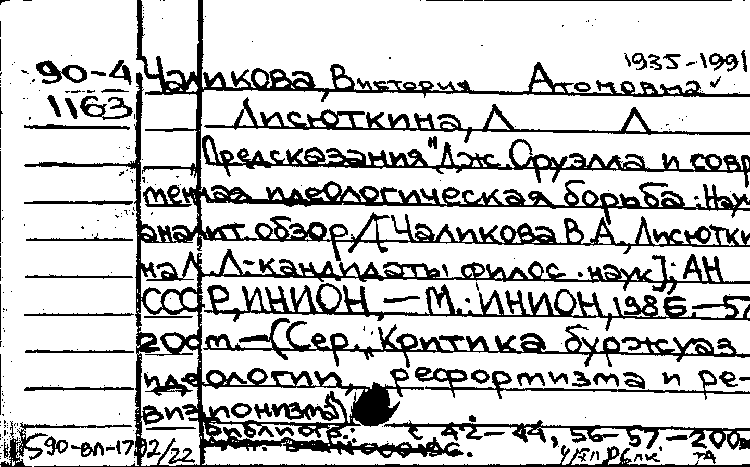 1935-1991
90-4 Чаликова, Виктория Атомовна
1163 Лисюткина, Л Л
"Предсказания" Дж. Оруэлла и совр
менная идеологическая борьба: Науч
аналит. обзор / [Чаликова В.А., Лисютки
на Л. Л.-кандидаты филос. наук]; АН
СССР, ИНИОН, — М.: ИНИОН, 1986.—57
200т.—(Сер. „Критика буржуаз
идеологии, реформизма и ре-
визионизма")
Библиогр.: с. 42-44, 56-57 — 200
S90-вл-1792/22